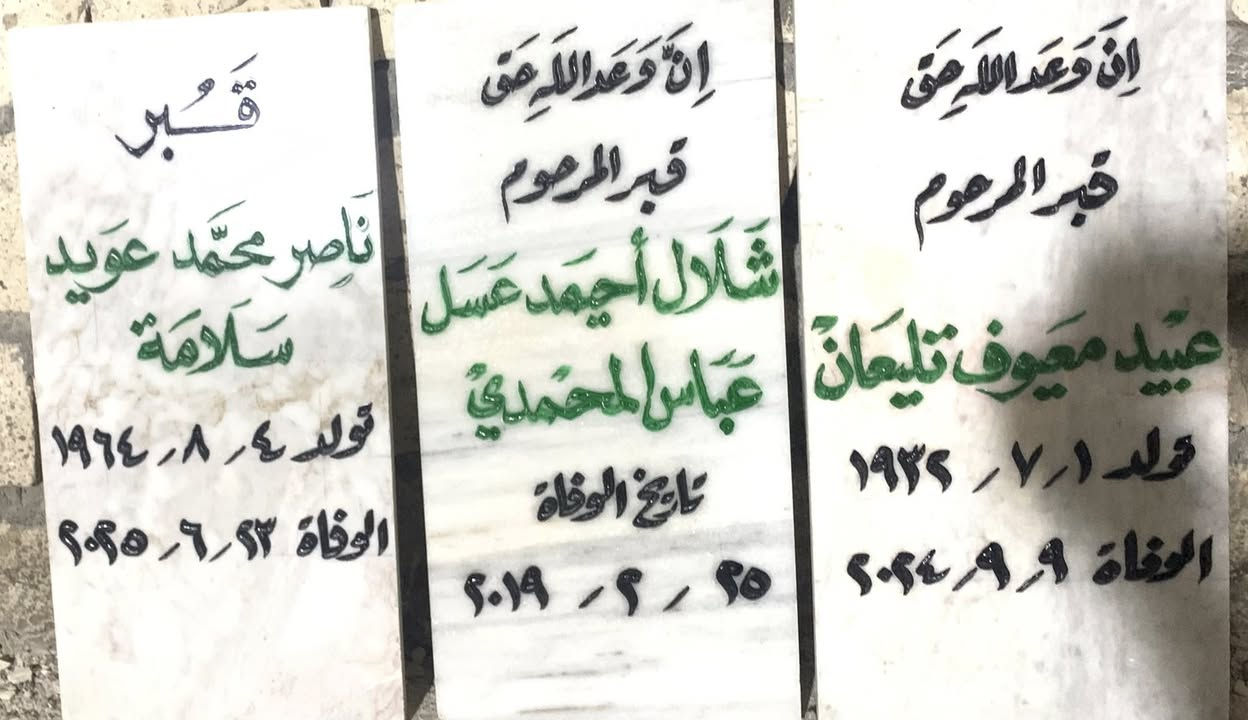 إنَّ وَعَد اللَّه حَق
قبر المرحوم
عبيْد معَيوف تليعَانْ
تولد ١ / ٧ / ١٩٣٢
الوفاة ٩ / ٩ / ٢٠٢٤
إنَّ وَعَد اللَّه حَق
قبر المرحوم
شَلَال أحيَمد عَسَل
عَبَاس المحْمديْ
تاريخ الوفاة
٢٥ / ٢ / ٢٠١٩
قَـبُر
نَاصِر محَمَّد عوَيد
سَلَامَة
تولد ٤ / ٨ / ١٩٦٤
الوفاة ٢٣ / ٦ / ٢٠٢٥